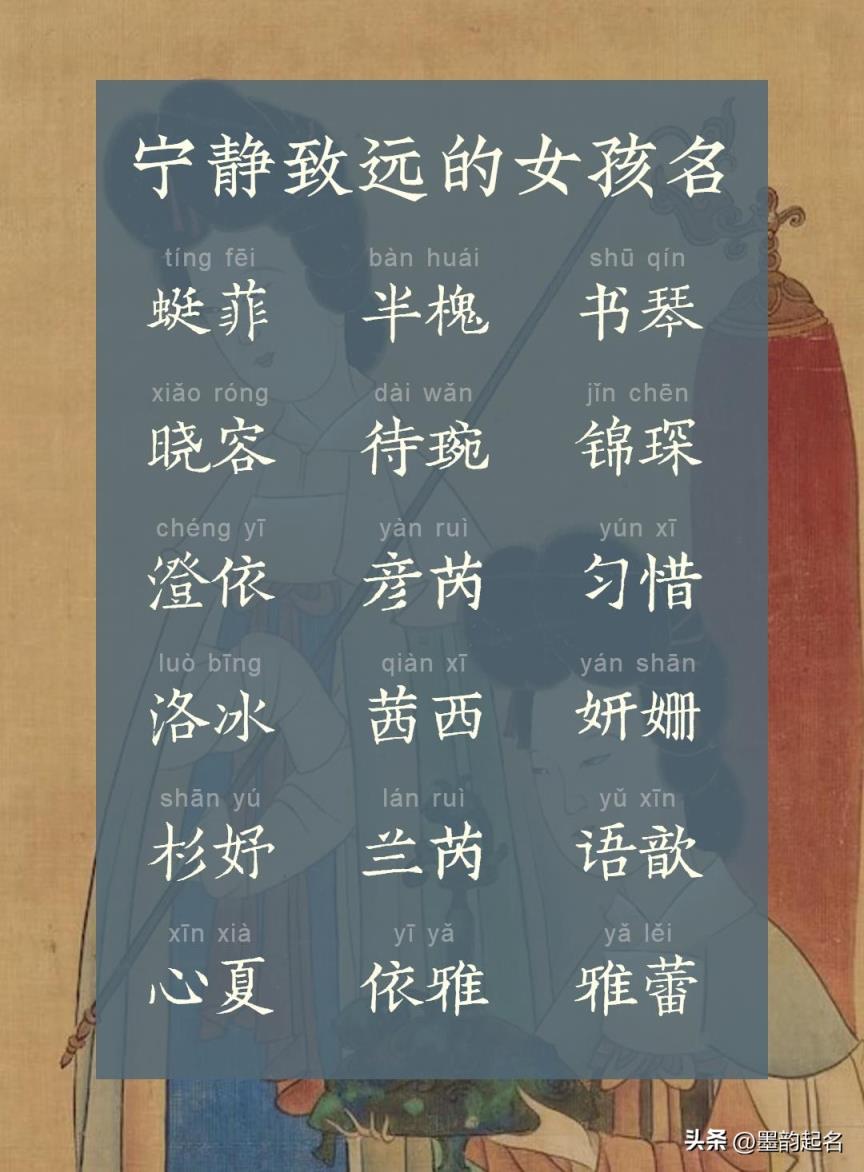 宁静致远的女孩名
tíng fēi bàn huái shū qín
蜓菲 半槐 书琴
xiǎo róng dài wǎn jǐn chēn
晓容 待琬 锦琛
chéng yī yàn ruì yún xī
澄依 彦芮 匀惜
luò bīng qiàn xī yán shān
洛冰 茜西 妍姗
shān yú lán ruì yǔ xīn
杉妤 兰芮 语歆
xīn xià yī yǎ yǎ lěi
心夏 依雅 雅蕾
头条 @墨韵起名